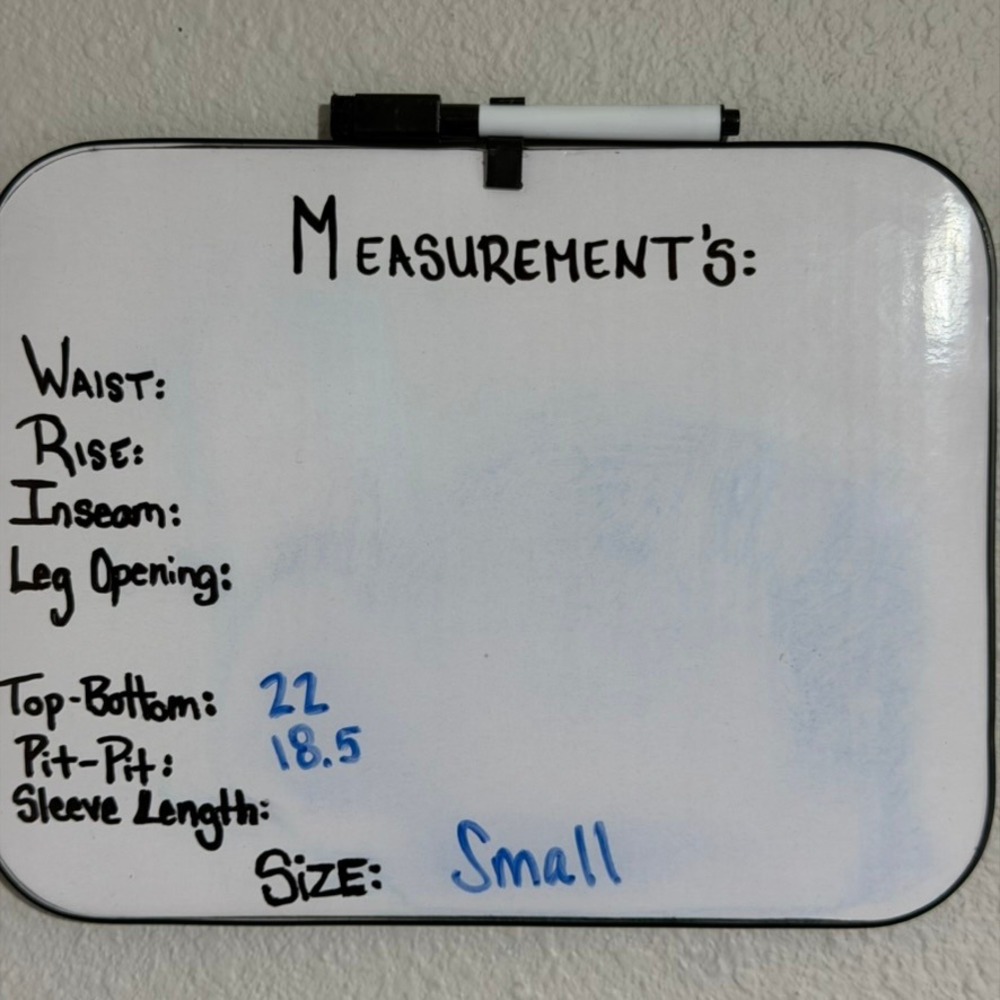 MEASUREMENT'S:
WAIST:
RISE:
Inseam:
Leg Opening:
Top-Bottom: 22
Pit-Pit: 18.5
Sleeve Length:
SiZE: Small